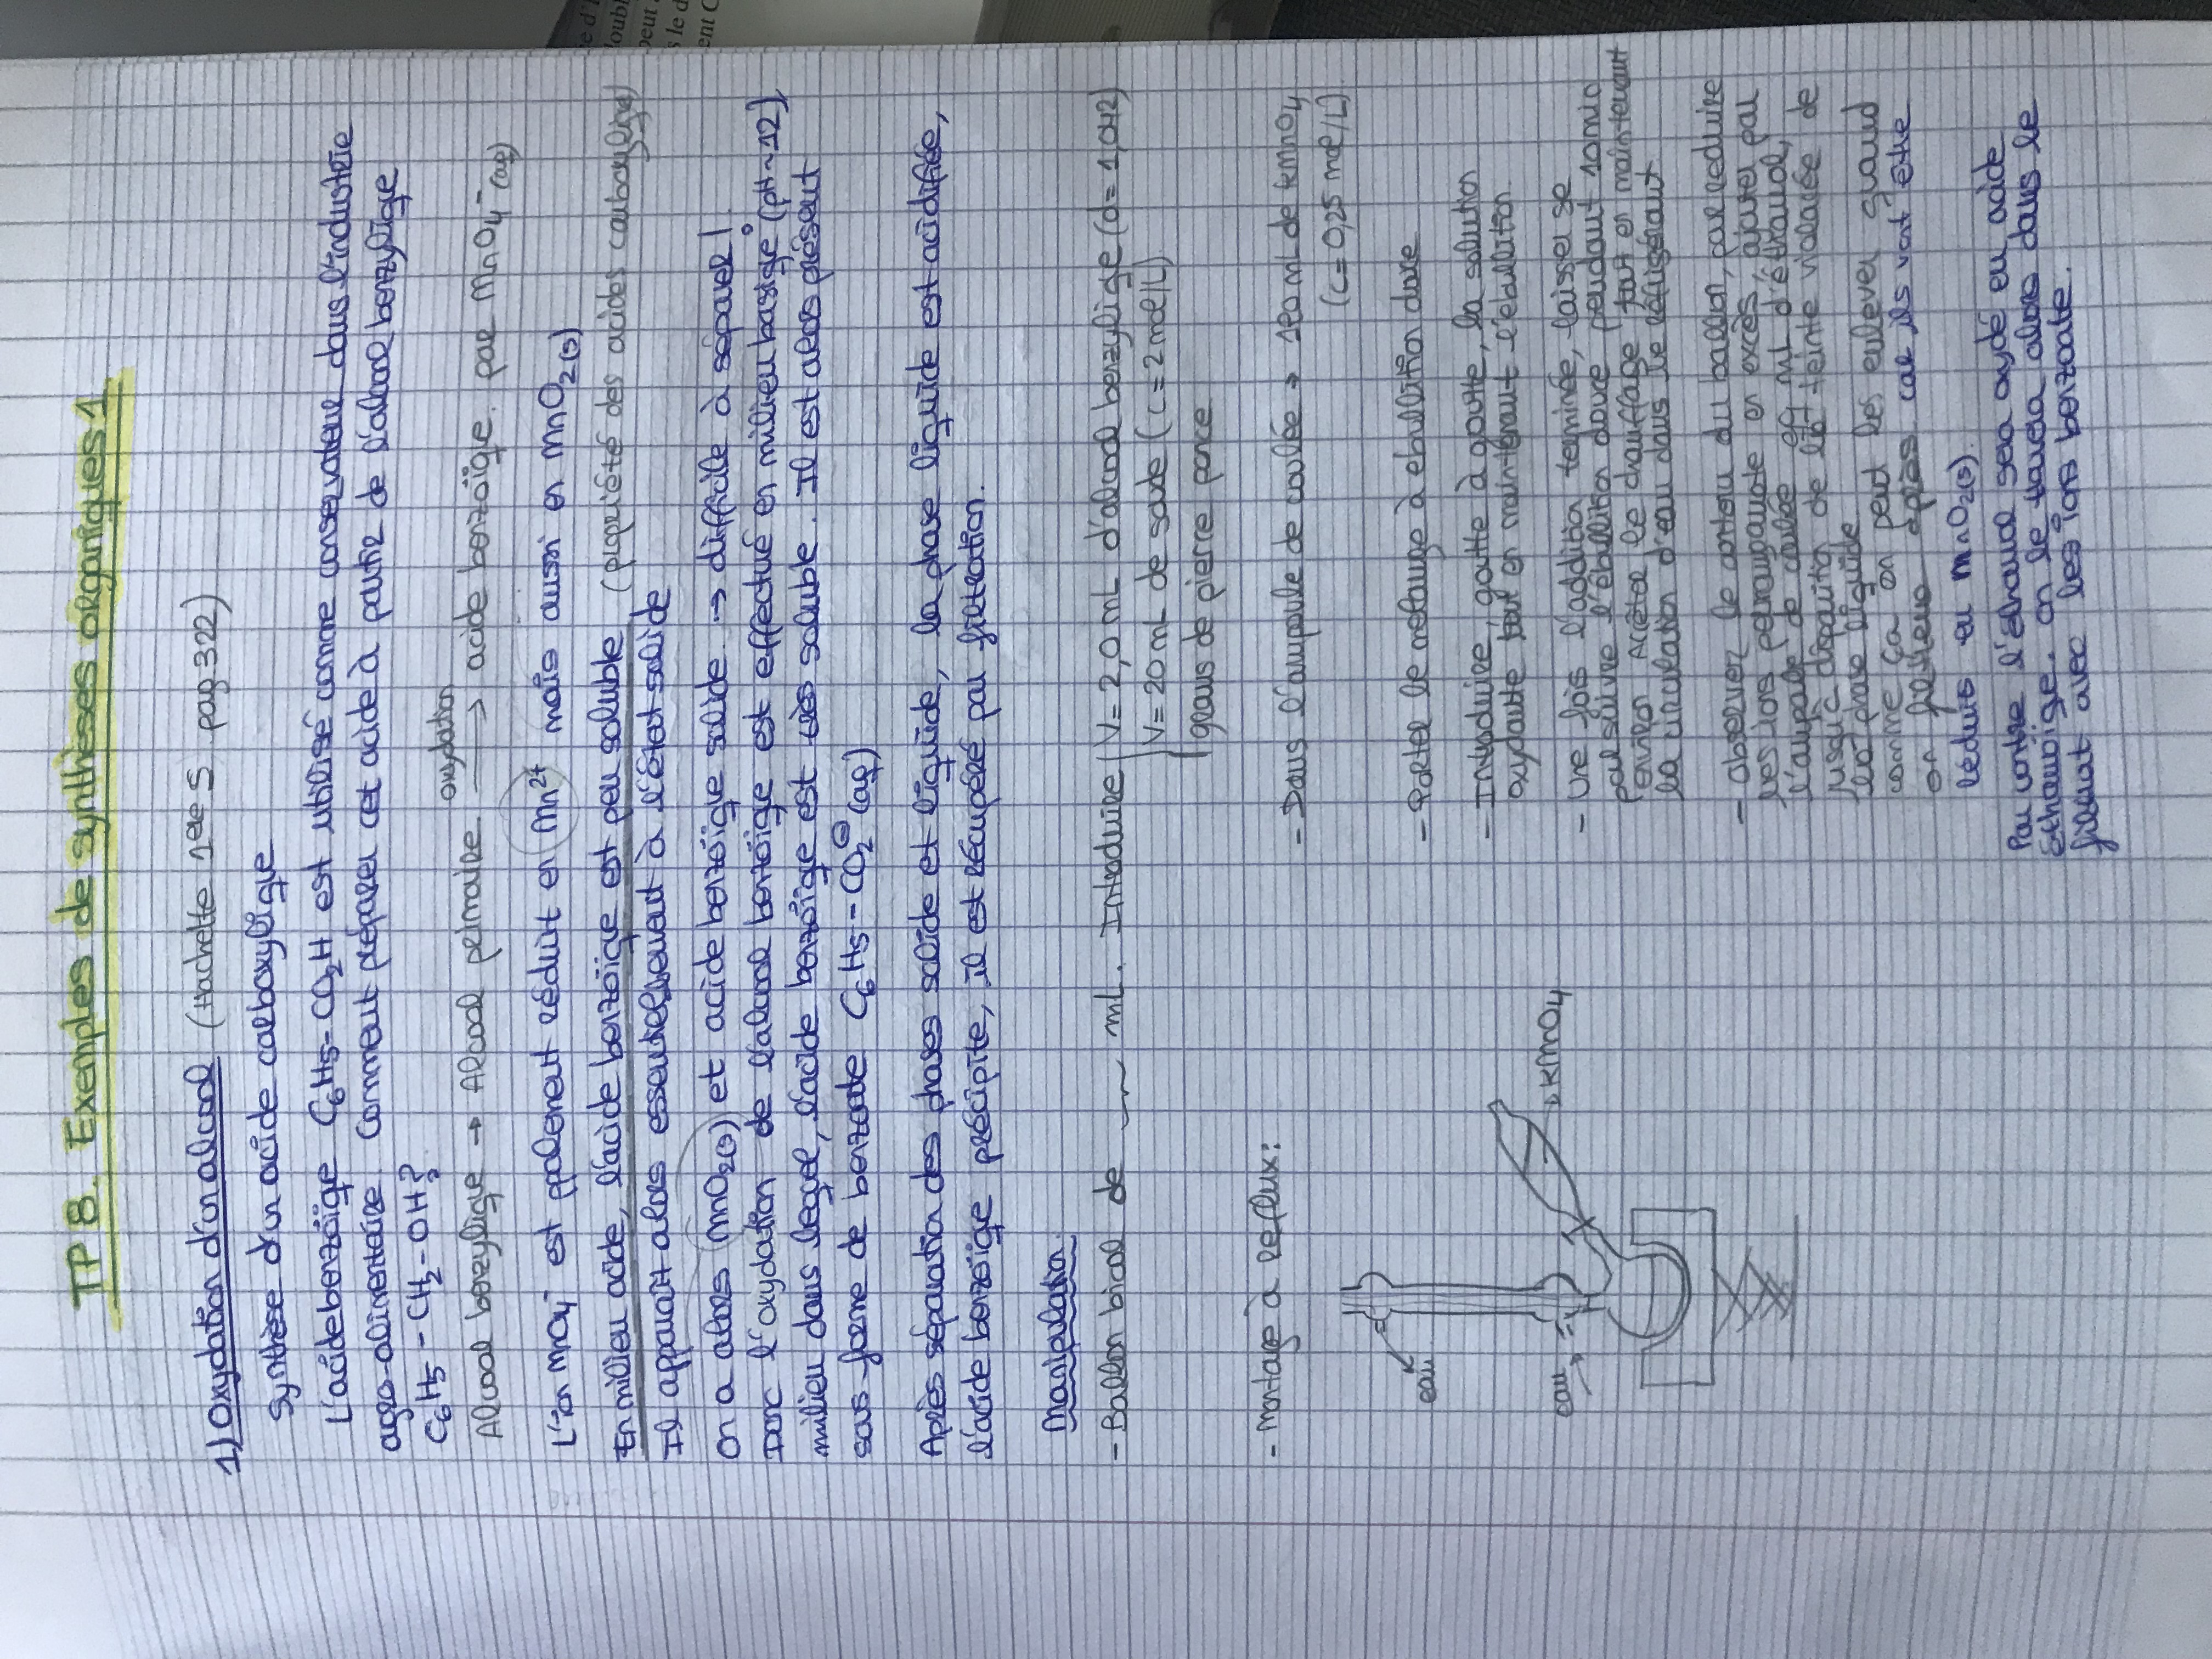 TP 8. Exemples de synthèses organiques 1
1) Oxydation d'un alcool (Hachette 1ere S pag 322)
Synthèse d'un acide carboxylique
L'acide benzoïque C6H5-CO2H est utilisé comme conservateur dans l'industrie
agro-alimentaire. Comment préparer cet acide à partir de l'alcool benzylique
C6H5-CH2-OH?
Alcool benzylique → Alcool primaire oxydation → acide benzoïque. par MnO4-(aq)
L'ion MnO4- est également réduit en Mn2+ mais aussi en MnO2(s)
En milieu acide, l'acide benzoïque est peu soluble (propriété des acides carboxylique)
Il apparaît alors essentiellement à l'état solide
On a alors MnO2(s) et acide benzoïque solide → difficile à séparer!
Donc l'oxydation de l'alcool benzoïque est effectué en milieu basique (pH~12),
milieu dans lequel, l'acide benzoïque est très soluble. Il est alors présent
sous forme de benzoate C6H5-CO2⊖(aq)
Après séparation des phases solide et liquide, la phase liquide est acidifiée,
l'acide benzoïque précipite, il est récupéré par filtration.
Manipulation
- Ballon bicol de __ mL. Introduire V= 2,0 mL d'alcool benzylique (d= 1,042)
V= 20 mL de soude (c= 2 mol/L)
grains de pierre ponce
- Montage à reflux:
- Dans l'ampoule de coulée → 120 mL de KMnO4
(c= 0,25 mol/L)
eau
- Porter le mélange à ebullition douce
- Introduire, goutte à goutte, la solution
oxydante tout en maintenant l'ebullition.
eau
KMnO4
- Une fois l'addition terminée, laisser se
poursuivre l'ébullition douce pendant 10 min
environ Arrêter le chauffage tout en maintenant
la circulation d'eau dans le réfrigérant
- Observer le contenu du ballon, par reduire
les ions permanganate en excès, ajouter par
l'ampoule de coulée mL d'éthanol,
jusqu'à disparition de la teinte violacée de
la phase liquide
comme ça on peut les enlever quand
on filtrera après car ils vont être
réduits en MnO2(s).
Par contre l'éthanol sera oxydé en acide
éthanoïque. On le aura alors dans le
filtrat avec les ions benzoate.